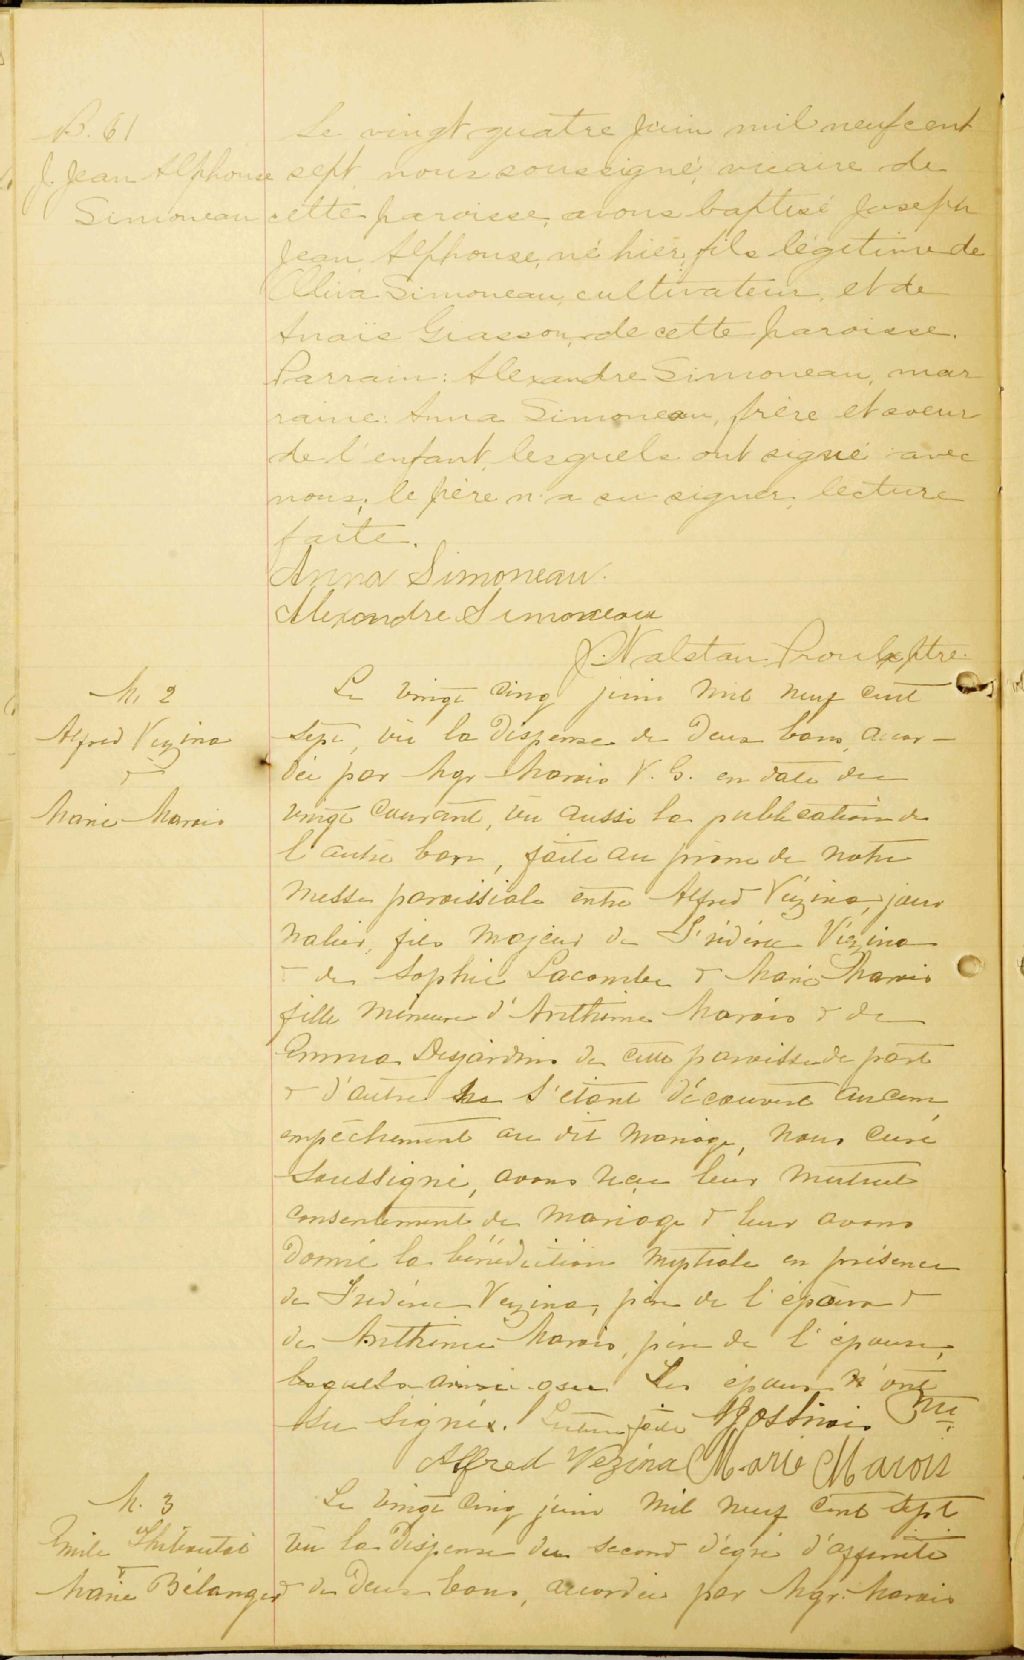 B. 61
J. Jean Alphonse
Simoneau
Le vingt quatre Juin mil neuf cent
sept, nous soussigné, vicaire de
cette paroisse, avons baptisé Joseph
Jean Alphonse, né hier, fils légitime de
Oliva Simoneau, cultivateur, et de
Anaïs Giasson, de cette paroisse.
Parrain: Alexandre Simoneau, mar
raine: Anna Simoneau, frère et soeur
de l'enfant, lesquels ont signé avec
nous; le père n'a su signer, lecture
faite.
Anna Simoneau.
Alexandre Simoneau
J. Walstan Proulx ptre.
M. 2
Alfred Vezina
&
Marie Marois
Le vingt cinq juin mil neuf cent
sept, vu la dispense de deux bans, accor-
dée par Mgr Marois V. G. en date du
vingt courant, vu aussi la publication de
l'autre ban, faite au prône de notre
messe paroissiale entre Alfred Vézina, jour
nalier, fils majeur de Fréderic Vézina
& de Sophie Lacombe & Marie Marois
fille mineure d'Anthime Marois & de
Emma Desjardins de cette paroisse de part
& d'autre ne s'étant découvert aucun
empêchement au dit mariage, nous curé
soussigné, avons reçu leur mutuel
consentement de mariage & leur avons
donné la bénédiction nuptiale en présence
de Fréderic Vezina, père de l'époux &
de Anthime Marois, père de l'épouse,
lesquels ainsi que les époux n'ont
su signer. Lecture faite
Alfred Vezina Marie Marois
M. 3
Emile Thibautot
&
Marie Bélanger
Le vingt cinq juin mil neuf cent sept
vu la dispense du second dégré d'affinité
& de deux bans, accordée par Mgr. Marois